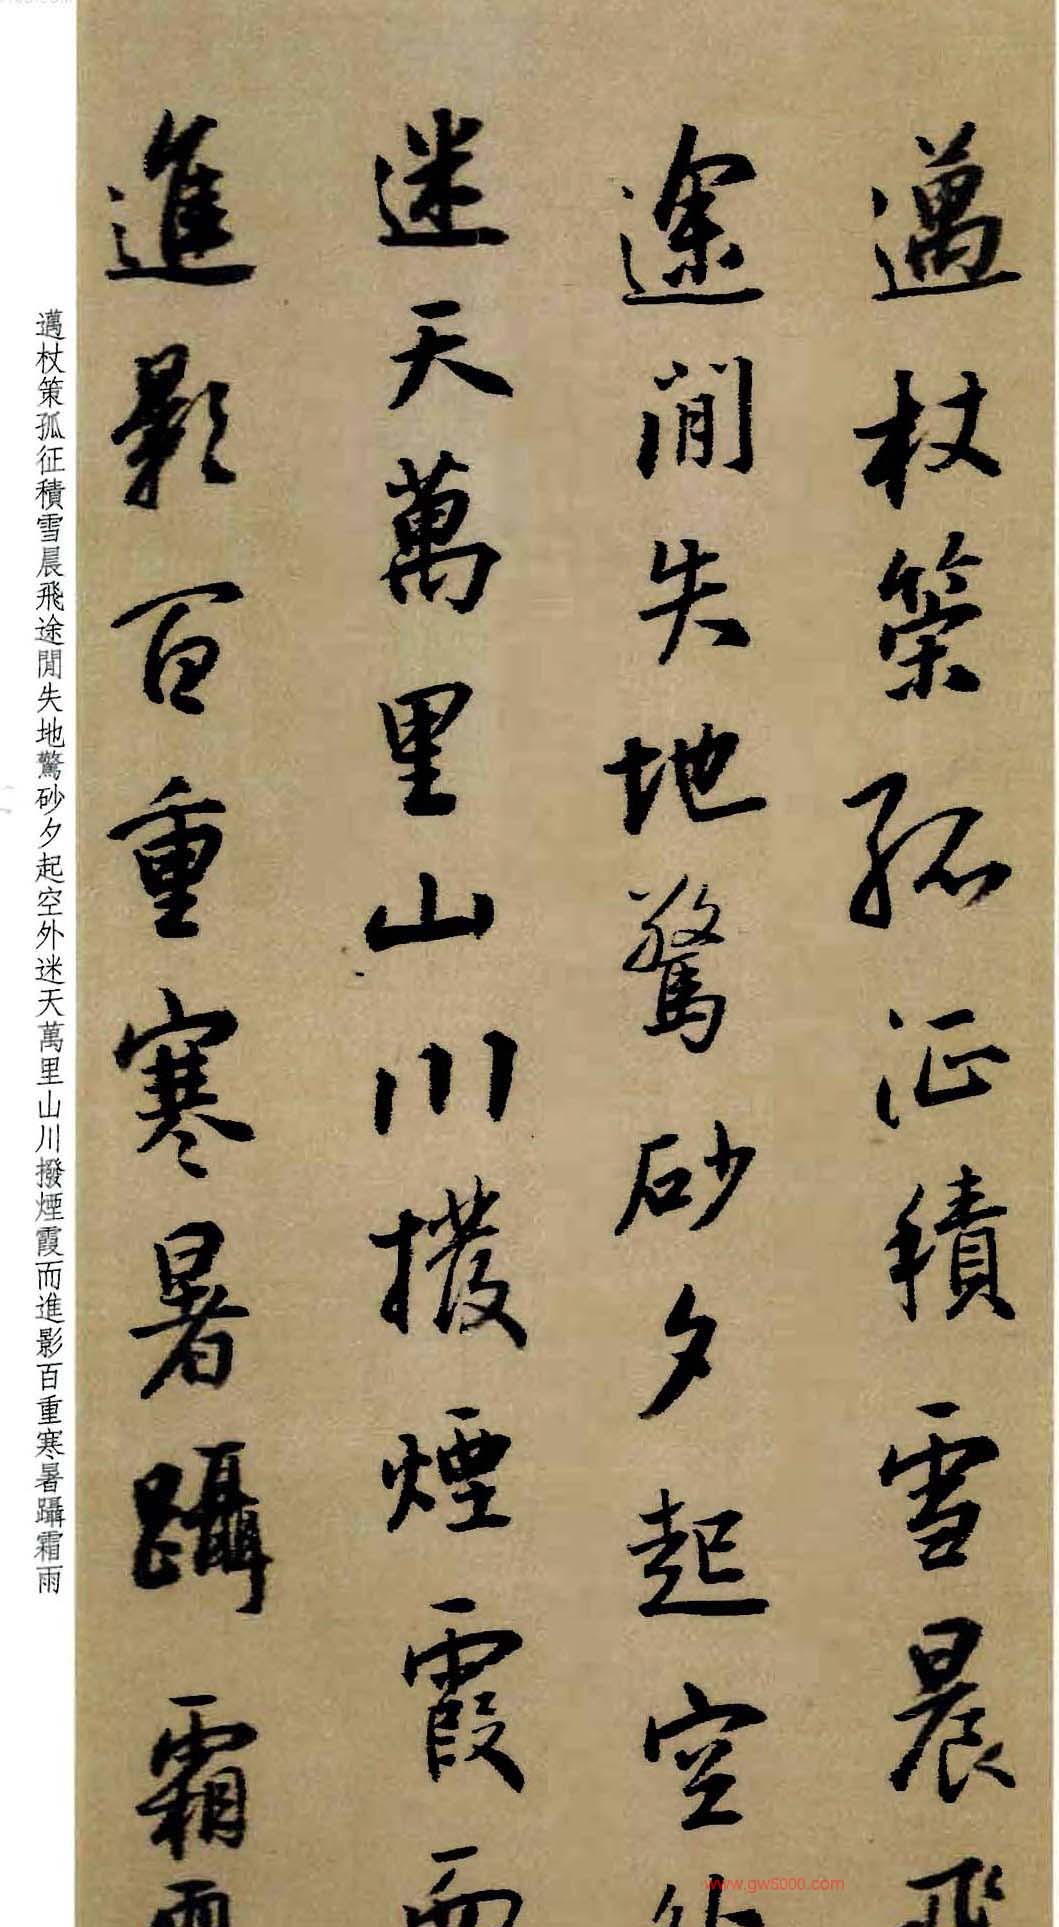 邁杖策孤征積雪晨飛
途閒失地驚砂夕起空外
迷天萬里山川撥煙霞而
進影百重寒暑躡霜雨
邁杖策孤征積雪晨飛途閒失地驚砂夕起空外迷天萬里山川撥煙霞而進影百重寒暑躡霜雨
www.gw5000.com